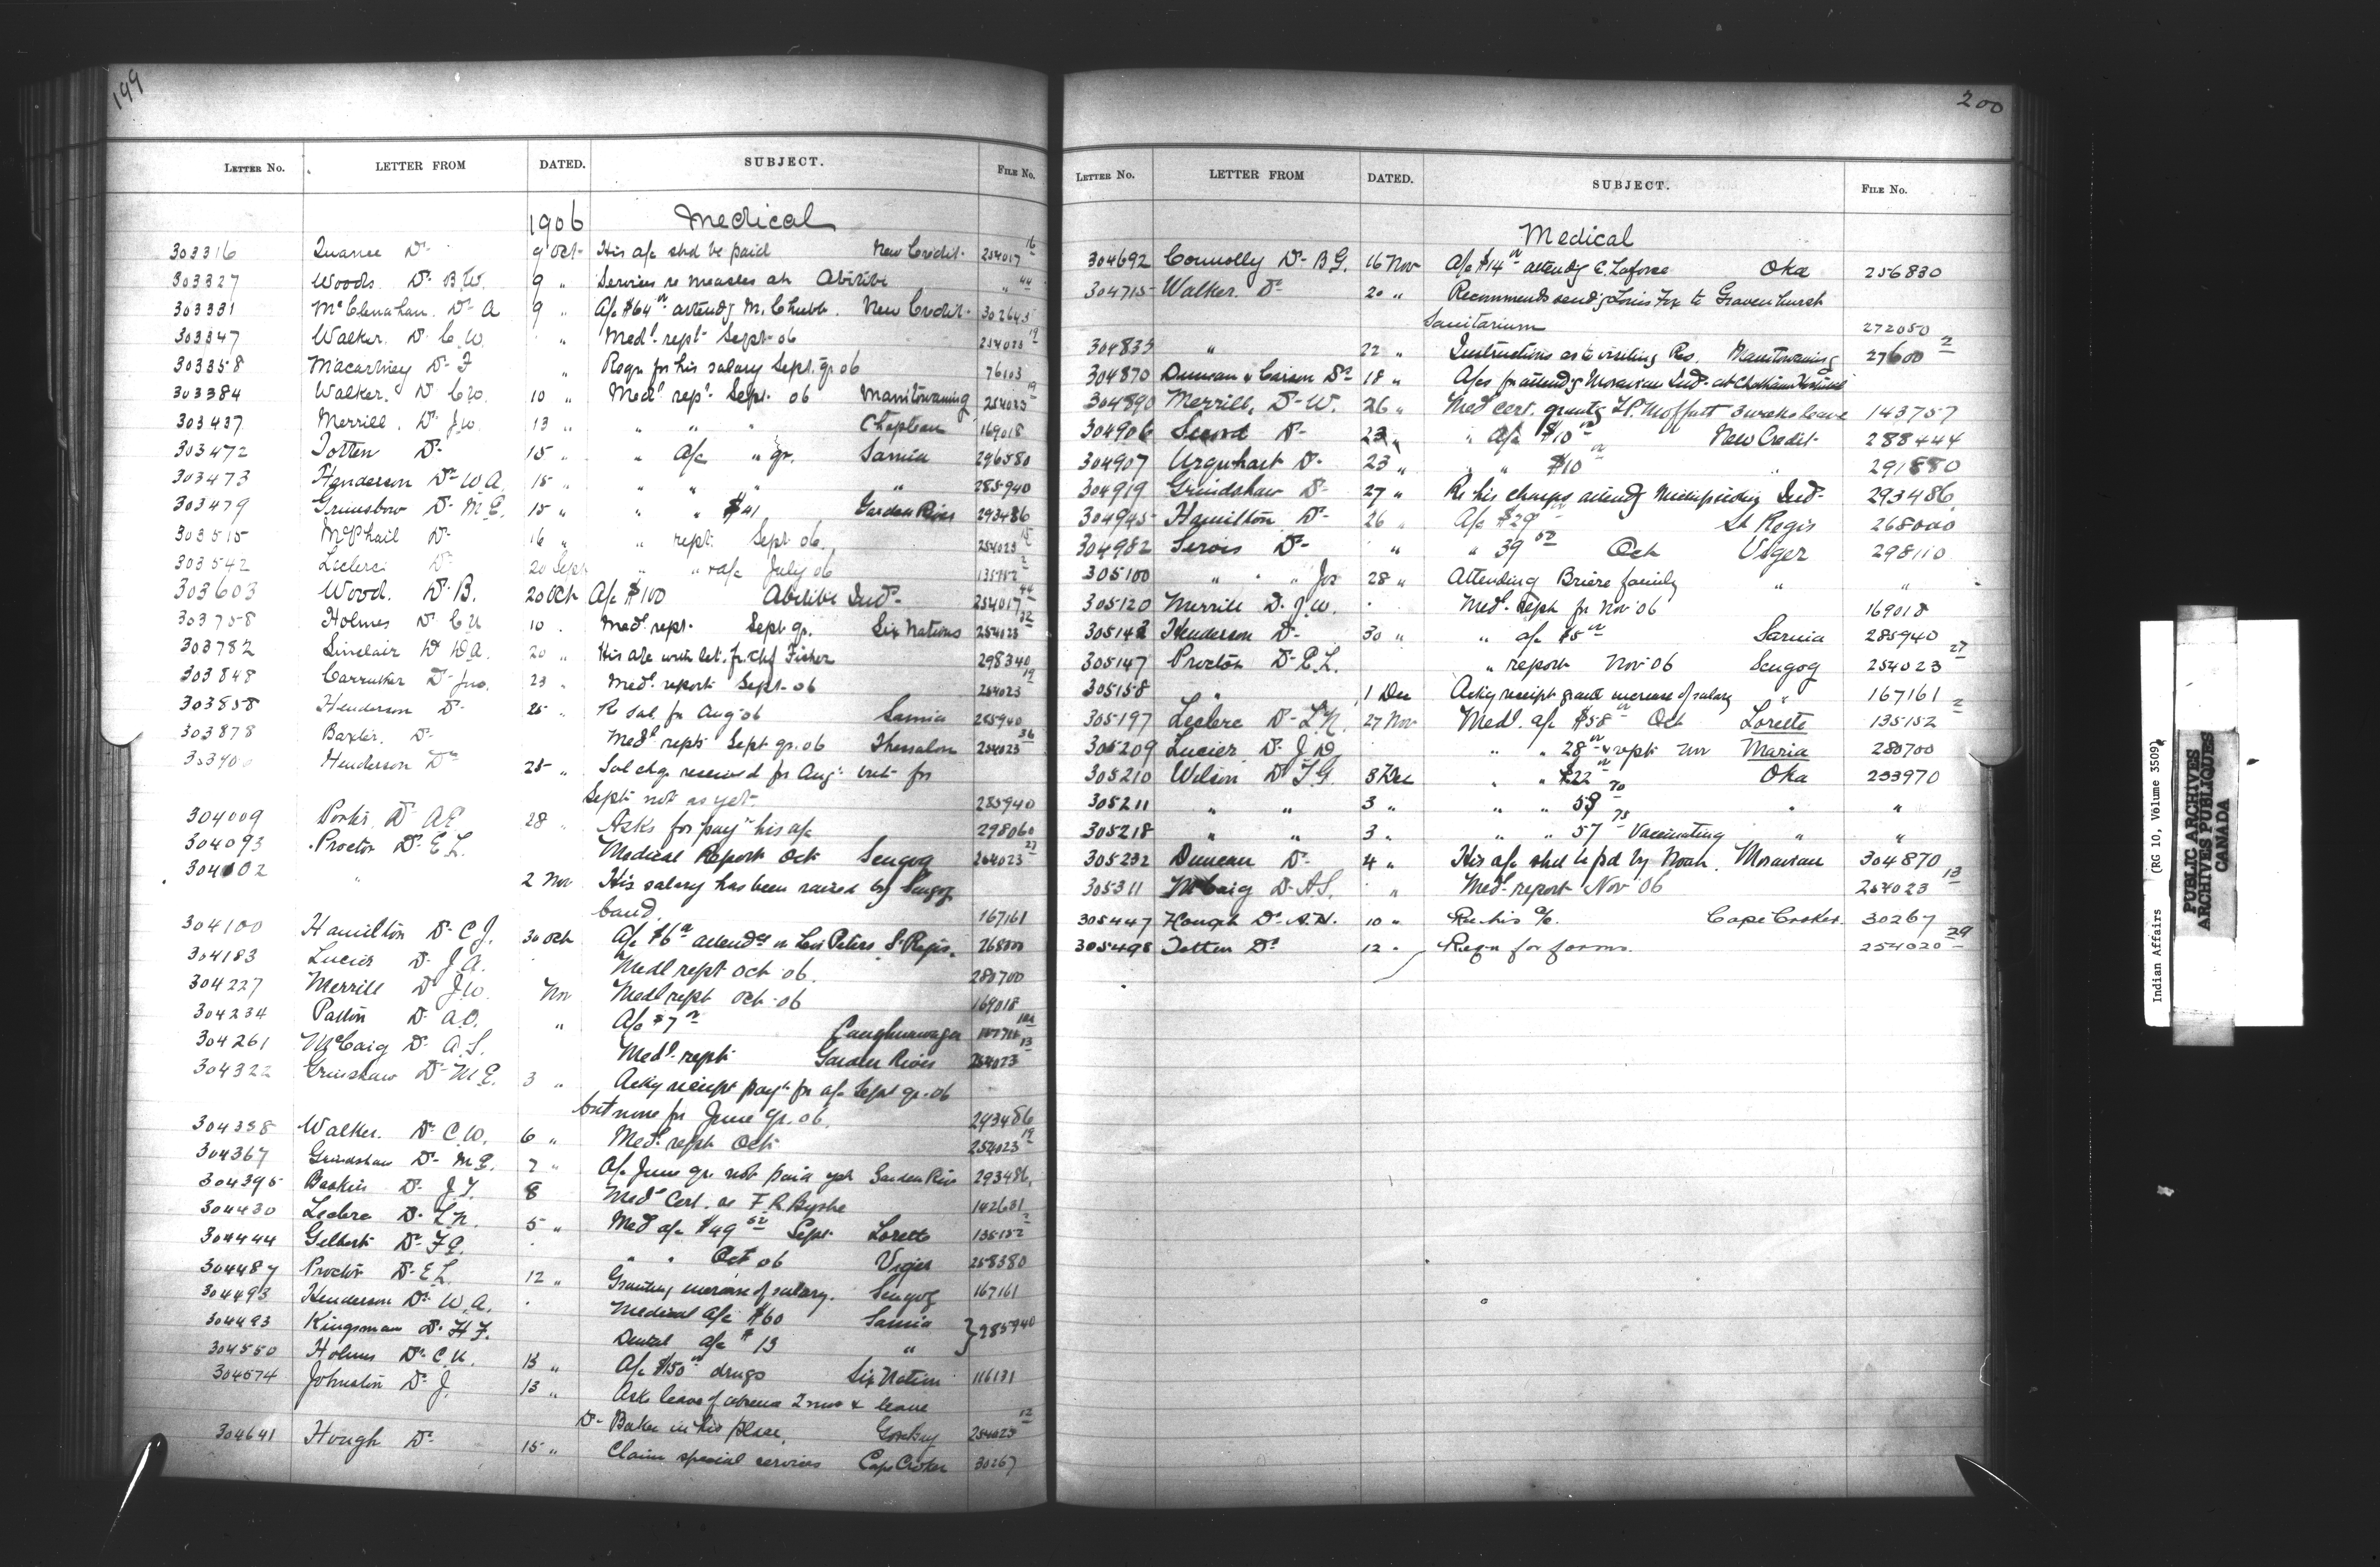 199
LETTER No. LETTER FROM DATED. SUBJECT. FILE No.
1906 Medical
303316 Quance Dr 9 Oct His a/c shd be paid New Credit 254017 16
303327 Woods Dr B.W. 9 " Services re measles at Abitibi " 44
303331 McClenahan Dr A 9 " A/c $64 attendg M. Chubb New Credit 302643
303347 Walker Dr C.W. " Medl rept Sept 06 254023 19
303358 Macartney Dr F " Reqn for his salary Sept qr 06 76103
303384 Walker Dr C.W. 10 " Medl rept Sept 06 Manitowaning 254023 19
303437 Merrill Dr J.W. 13 " " " " Chapleau 169018
303472 Totten Dr 15 " " A/c " qr. Sarnia 296580
303473 Henderson Dr W A 15 " " " " " 285940
303479 Dr M E 15 " " " $41 Garden River 293486
303515 McPhail Dr 16 " " rept Sept 06 254023
303542 Leclerc Dr 20 Sept " " a/c July 06 135152 2
303603 Wood. Dr B. 20 Oct A/c $100 Abitibi Inds 254017 44
303758 Holmes Dr 10 " Medl rept Sept qr. Six Nations 254023 32
303782 Sinclair Dr D.A. 20 " His a/c with let. fr. chf Fisher 298340
303848 Carruther Dr Jno. 23 " Medl report Sept 06 254023 19
303858 Henderson Dr 25 " Re sal. for Aug 06 Sarnia 285940
303878 Baxter. Dr Medl rept Sept qr. 06 Thessalon 254023 36
Henderson Dr 25 " Sal chq received for Aug. but for
Sept not as yet. 285940
304009 Porter Dr A E 28 " Asks for payt his a/c 298060
304093 Proctor Dr E L. Medical Report Oct Scugog 254023 27
304102 " 2 Nov His salary has been raised by Scugog
band 167161
304100 Hamilton Dr C J. 30 Oct A/c $6 attendce on Peters St Regis 268000
304183 Lucier Dr J A. Medl rept Oct 06. 280700
304227 Merrill Dr J W. Nov Medl rept Oct 06 169018
304234 Patton Dr A.O. " A/c $7 Caughnawaga
304261 McCaig Dr A.S. Medl rept Garden River 254023 13
304322 Grinshaw Dr M E. 3 " Ackg receipt payt for a/c Sept qr. 06
but none for June qr. 06. 293486
304338 Walker. Dr C.W. 6 " Medl rept Oct 254023 19
304367 Grindshaw Dr M E. 7 " A/c June qr. not paid yet Garden River 293486
304395 Baskin Dr J.T. 8 Medl Cert. re F R Byshe 142631
304430 Leclerc Dr L.N. 5 " Medl a/c $49 52 Sept Lorette 135152 2
304444 Gilbert Dr F.E. " " Oct 06 Viger 258380
304487 Proctor Dr E L. 12 " Granting increase of salary. Scugog 167161
304493 Henderson Dr W.A. Medical a/c $60 Sarnia
304493 Kingsman Dr H F. Dental a/c $13 " } 285940
304550 Holmes Dr C.U. 13 " A/c $150 drugs Six Nation 116131
304574 Johnston Dr J. 13 " Asks leave of absence 2 mos & leave
Dr Baker in his place. Gore Bay 254023 12
304641 Hough Dr 15 " Claim special services Cape Croker 30267
200
LETTER No. LETTER FROM DATED. SUBJECT. FILE No.
Medical
304692 Connolly Dr B G. 16 Nov A/c $14 attendg C. Laforce Oka 256830
304715 Walker. Dr 20 " Recommends sendg Louis Fox to Gravenhurst
Sanitarium 272050
304835 " 22 " Instructions as to visiting Res. Manitowaning 27600 2
304870 Duncan & Carson Drs 18 " A/cs for attendg Moravian Inds at Chatham Hospital
304890 Merrill, Dr W. 26 " Med cert. grantg Moffatt 3 weeks leave 143757
304906 Secord Dr 23 " " A/c $10 New Credit 288444
304907 Urquhart Dr 23 " " " $10 " 291880
304919 Grindshaw Dr 27 " Re his charges attendg Inds 293486
304945 Hamilton Dr 26 " A/c $29 St Regis 268000
304982 Sirois Dr " " 39 52 Oct Viger 298110
305100 " " " Jos 28 " Attending Briere family " "
305120 Merrill Dr J.W. Medl rept for Nov 06 169018
305142 Henderson Dr 30 " " a/c $5 Sarnia 285940
305147 Proctor Dr E.L. " report Nov 06 Scugog 254023 27
305158 " 1 Dec Ackg receipt grant increase of salary " 167161
305197 Leclerc Dr L.N. 27 Nov Medl. a/c $58 Oct Lorette 135152 2
305209 Lucier Dr J D. " " 28 & rept Nov Maria 280700
305210 Wilson Dr T G. 3 Dec " " $22 Oka 233970
305211 " " 3 " " " 59 70 " "
305218 " " 3 " " " 57 75 Vaccinating " "
305232 Duncan Dr 4 " His a/c shd be pd by Noah. Moravian 304870
305311 McCaig Dr A.S. " Medl report Nov 06 254023 13
305447 Hough Dr A.H. 10 " Re his a/c. Cape Croker. 30267
305498 Totten Dr 12 " Reqn for forms. 254020 29
Indian Affairs (RG 10, Volume 3509)
PUBLIC ARCHIVES
ARCHIVES PUBLIQUES
CANADA